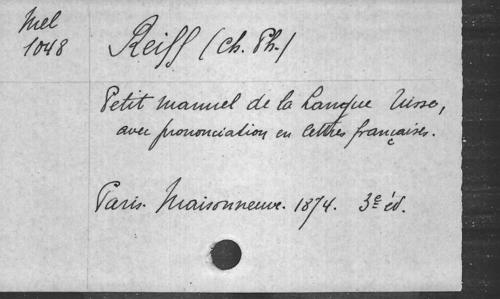 Mel
1048
Reiff (Ch. Ph.)
Petit manuel de la langue russe,
avec prononciation en lettres françaises.
Paris. Maisonneuve. 1874. 3e éd.